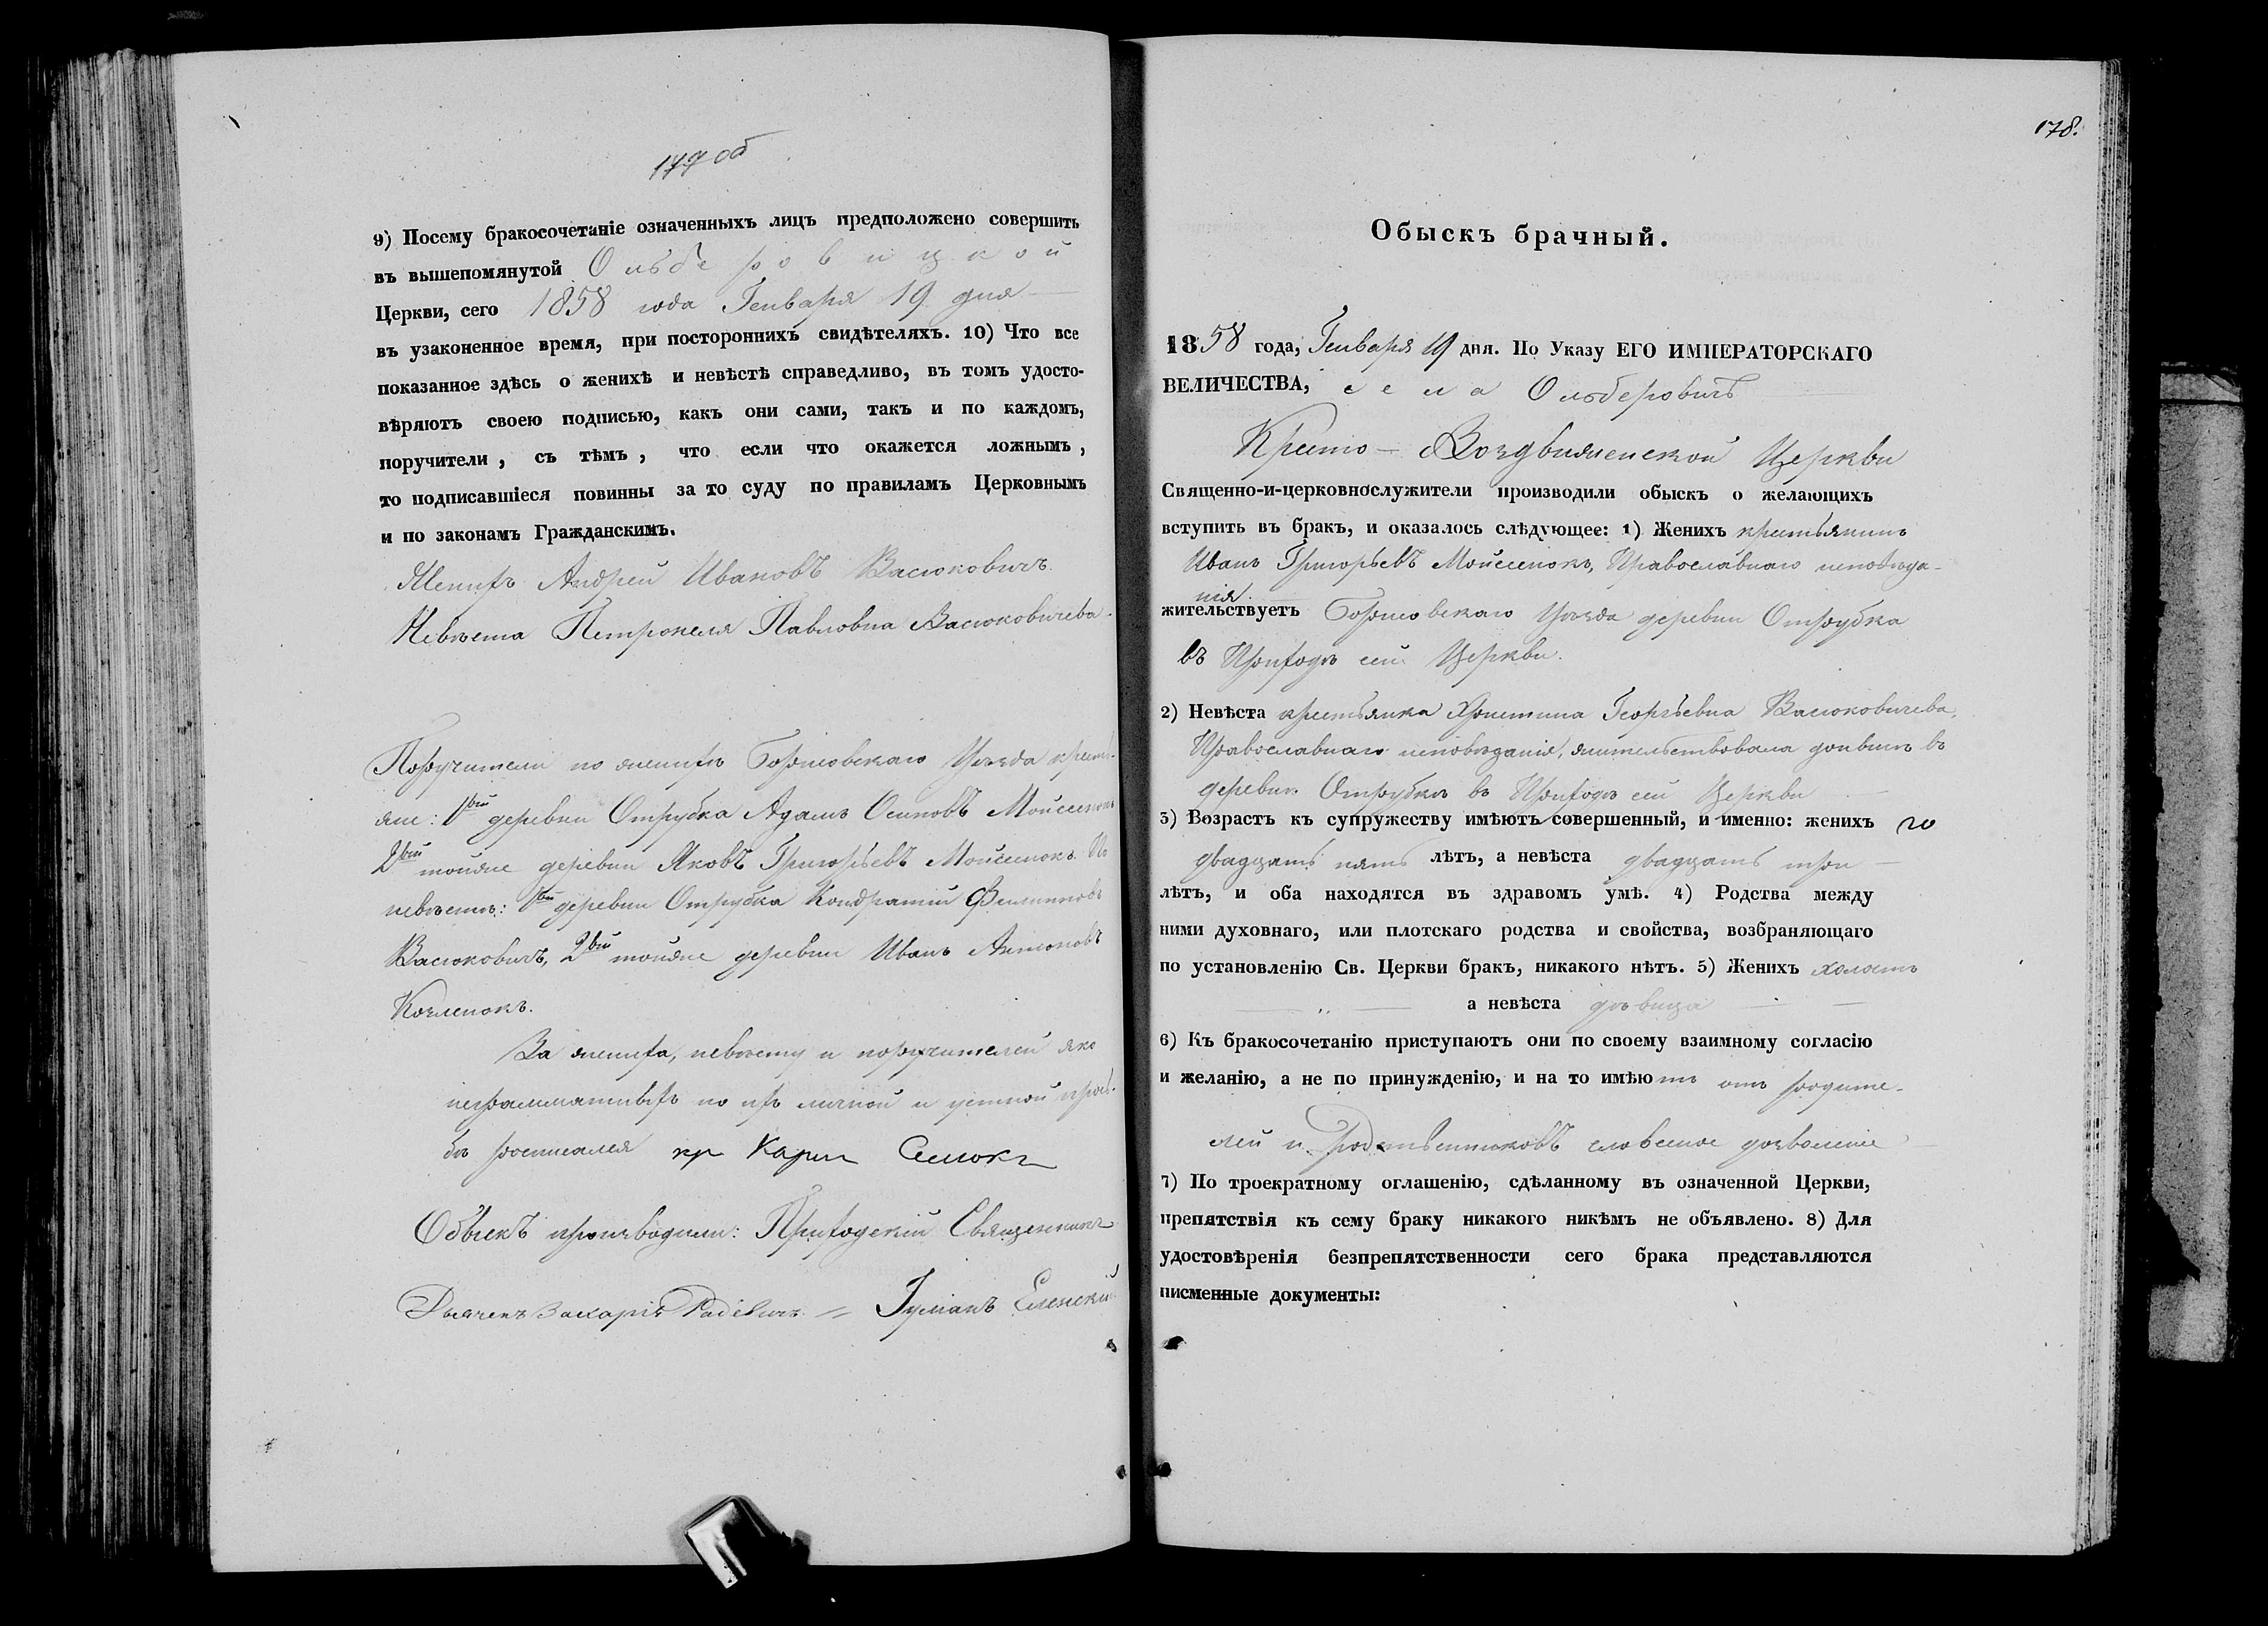 177 об
9) Посему бракосочетаніе означенныхъ лицъ предположено совершить
въ вышепомянутой Ольберовицкой
Церкви, сего 1858 года Генваря 19 дня
въ узаконенное время, при постороннихъ свидѣтеляхъ. 10) Что все
показанное здѣсь о женихѣ и невѣстѣ справедливо, въ томъ удосто-
вѣряютъ своею подписью, какъ они сами, такъ и по каждомъ,
поручители, съ тѣмъ, что если что окажется ложнымъ,
то подписавшіеся повинны за то суду по правиламъ Церковнымъ
и по законамъ Гражданскимъ.
Женихъ Андрей Ивановъ Васюковичъ.
Невѣста Петронеля Павловна Васюковичева.
Поручители по женихѣ Борисовскаго Уѣзда кресть-
яне: 1вый деревни Отрубка Адамъ Осиповъ Мойсеенокъ
2вый тойже деревни Яковъ Григорьевъ Мойсеенокъ. По
невѣстѣ: 1вый деревни Отрубка Кондратій Филиповъ
Васюковичъ, 2вый тойже деревни Иванъ Антоновъ
Козленокъ.
За жениха, невѣсту и поручителей яко
неграмматныхъ по ихъ личной и устной прозь-
бѣ росписался кр
Обыскъ производили: Приходскій Священникъ
Дьячекъ Захарія Радевичъ. = Іуліанъ Еленскій
178.
Обыскъ брачный.
1858 года, Генваря 19 дня. По Указу ЕГО ИМПЕРАТОРСКАГО
ВЕЛИЧЕСТВА, села Ольберовичъ
Кресто-Воздвиженской Церкви
Священно-и-церковнослужители производили обыскъ о желающихъ
вступить въ бракъ, и оказалось слѣдующее: 1) Женихъ крестьянинъ
Иванъ Григорьевъ Мойсеенокъ, Православнаго исповѣда-
нія.
жительствуетъ Борисовскаго Уѣзда деревни Отрубка
въ Приходѣ сей Церкви.
2) Невѣста крестьянка Христина Георгьевна Васюковичева,
Православнаго исповѣданія, жительствовала донынѣ въ
деревни Отрубкѣ въ Приходѣ сей Церкви
3) Возрастъ къ супружеству имѣютъ совершенный, и именно: женихъ
двадцать пять лѣтъ, а невѣста двадцать три
лѣтъ, и оба находятся въ здравомъ умѣ. 4) Родства между
ними духовнаго, или плотскаго родства и свойства, возбраняющаго
по установленію Св. Церкви бракъ, никакого нѣтъ. 5) Женихъ холостъ
а невѣста дѣвица
6) Къ бракосочетанію приступаютъ они по своему взаимному согласію
и желанію, а не по принужденію, и на то имѣютъ отъ родите-
лей и родственниковъ словесное дозволеніе
7) По троекратному оглашенію, сдѣланному въ означенной Церкви,
препятствія къ сему браку никакого никѣмъ не объявлено. 8) Для
удостовѣренія безпрепятственности сего брака представляются
писменные документы: